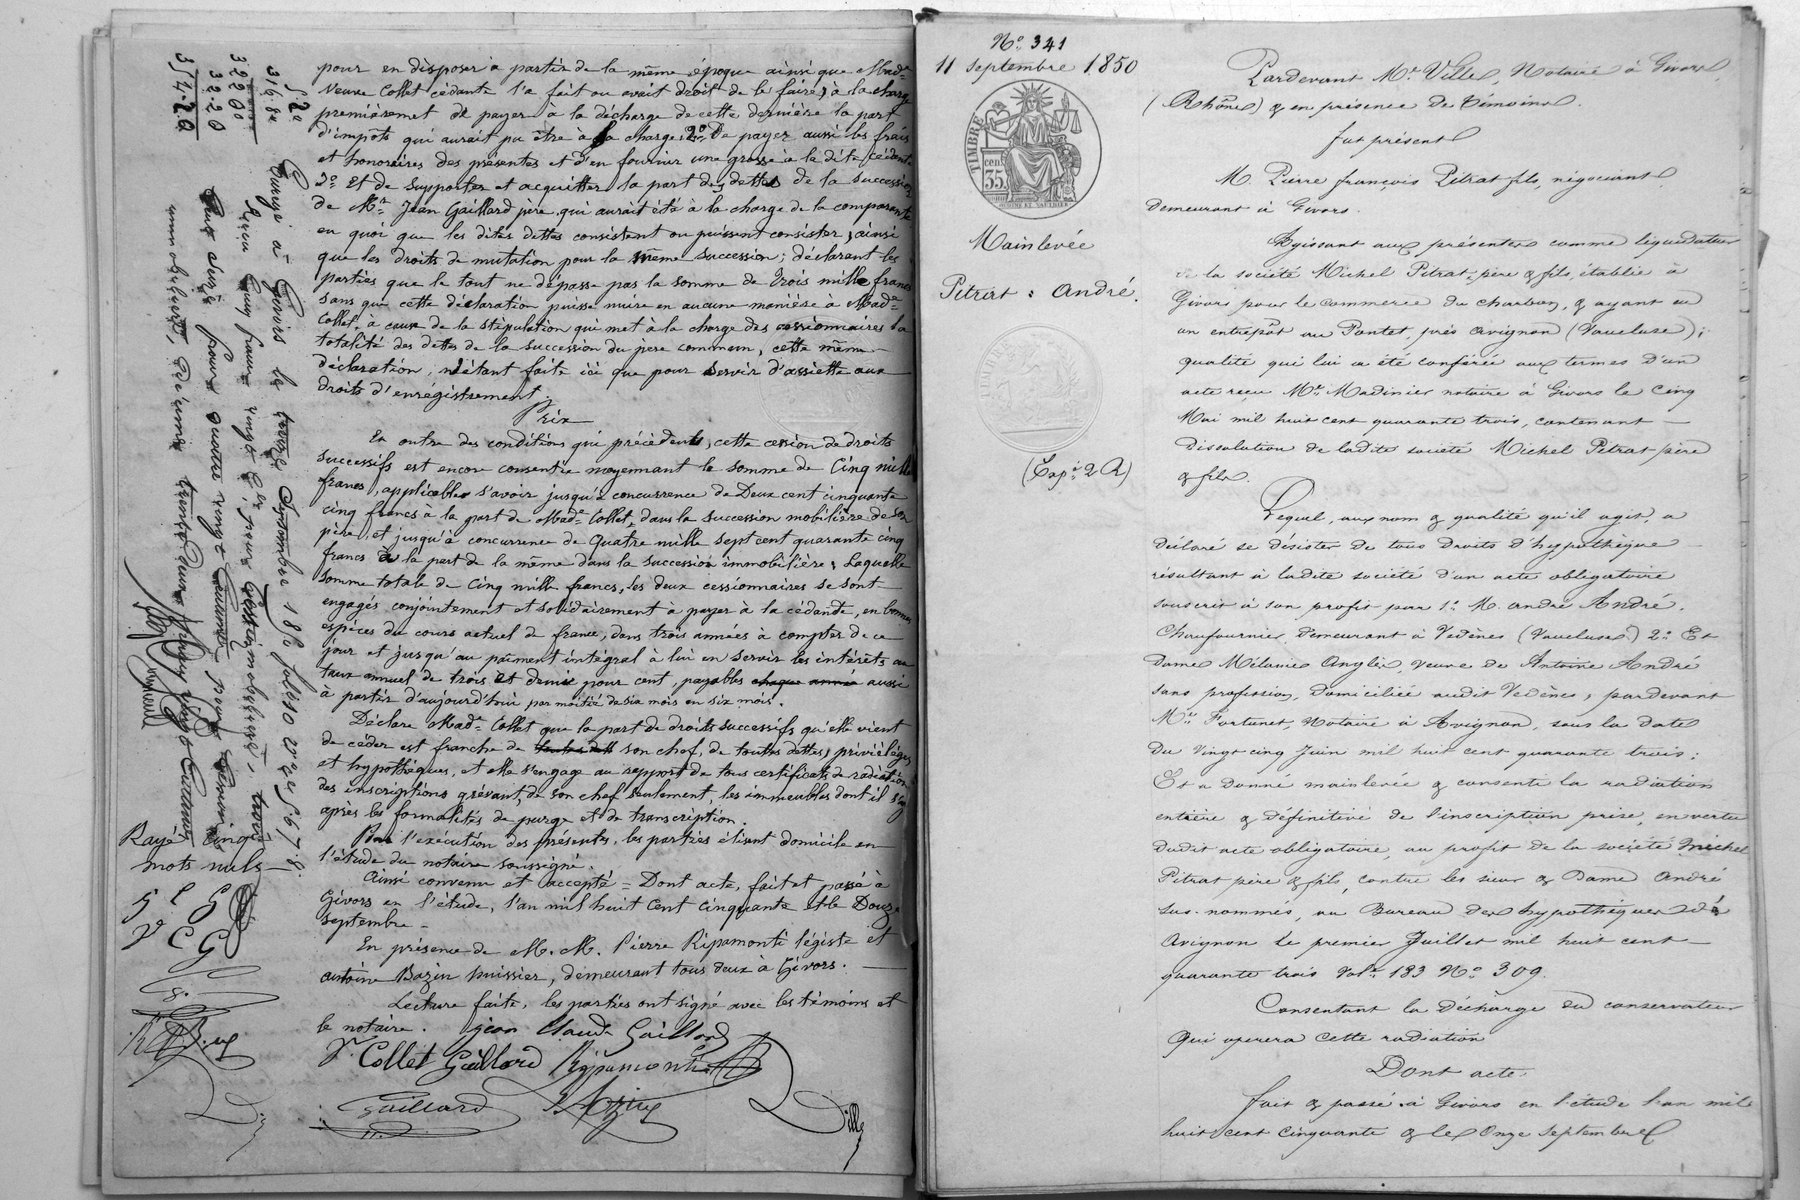 pour en disposer à partir de la même époque ainsi que Made
Veuve Collet cédante l'a fait ou avait droit de le faire, à la charge
premièrement de payer à la décharge de cette dernière la part
d'impôts qui aurait pu être à sa charge; 2o De payer aussi les frais
et honoraires des présentes et d'en fournir une grosse à la dite cédante
3o Et de supporter et acquitter la part des dettes de la succession
de Mr Jean Gaillard père qui aurait été à la charge de la comparante
en quoi que les dites dettes consistent ou puissent consister, ainsi
que les droits de mutation pour la même succession; déclarant les
parties que le tout ne dépasse pas la somme de Trois mille francs
sans que cette déclaration puisse nuire en aucune manière à Made
Collet, à cause de la stipulation qui met à la charge des cessionnaires la
totalité des dettes de la succession du père commun, cette même
déclaration, n'étant faite ici que pour servir d'assiette aux
droits d'enrégistrement.
Prix
En outre des conditions qui précèdent, cette cession de droits
successifs est encore consentie moyennant la somme de Cinq mille
francs, applicables savoir jusqu'à concurrence de Deux cent cinquante
cinq francs à la part de Made Collet, dans la succession mobilière de son
père, et jusqu'à concurrence de Quatre mille sept cent quarante cinq
francs à la part de la même dans la succession immobilière; Laquelle
somme totale de Cinq mille francs, les deux cessionnaires se sont
engagés conjointement et solidairement à payer à la cédante, en bonnes
espèces du cours actuel de france, dans trois années à compter de ce
jour et jusqu'au paiment intégral à lui en servir les intérêts au
taux annuel de trois et demie pour cent, payables chaque année aussi
à partir d'aujourd'hui par moitié de six mois en six mois.
Déclare Made Collet que la part de droits successifs qu'elle vient
de céder est franche de son chef, de toutes dettes, privilèges
et hypothèques, et elle s'engage au rapport de tous certificats de radiation
des inscriptions grévant, de son chef seulement, les immeubles dont il s'agit
après les formalités de purge et de transcription.
Pour l'exécution des présentes, les parties élisent domicile en
l'étude du notaire soussigné.
Ainsi convenu et accepté = Dont acte, fait et passé à
Givors en l'étude, l'an mil huit cent cinquante et le Douze
septembre =
En présence de M.M. Pierre Ripamonti légiste et
antoine Bazin huissier, demeurant tous deux à Givors.
Lecture faite, les parties ont signé avec les témoins et
le notaire. jean Claude Gaillard
Ve Collet Gaillard Ripamonti
Gaillard Bazin Ville
52
3168
32200
3220
35420
Rayé cinq
mots nuls
No 341
11 septembre 1850
TIMBRE
cen
35
Mainlevée
Pitrat : André.
(Expé 2 R)
Pardevant Me Ville, Notaire à Givors
(Rhône) & en présence de témoins.
fut présent
M. Pierre françois Pitrat fils, négociant,
demeurant à Givors.
Agissant aux présentes comme liquidateur
de la société Michel Pitrat père & fils, établie à
Givors pour le commerce du charbon, & ayant eu
un entrepôt au Pontet, près Avignon (Vaucluse);
qualité qui lui a été conférée aux termes d'un
acte reçu Me Madinier notaire à Givors le cinq
Mai mil huit cent quarante trois, contenant
dissolution de ladite société Michel Pitrat père
& fils.
Lequel, aux nom & qualité qu'il agit, a
déclaré se désister de tous droits d'hypothèque
résultant à ladite société d'un acte obligatoire
souscrit à son profit par 1o M. andré André,
Chaufournier, demeurant à Vedènes (Vaucluse) 2o Et
dame Mélanie Anglès, veuve de Antoine André
sans profession, domiciliée audit Vedènes; pardevant
Me Fortunet, Notaire à Avignon, sous la date
du vingt cinq Juin mil huit cent quarante trois;
Et a donné mainlevée & consenti la radiation
entière & définitive de l'inscription prise, en vertu
dudit acte obligatoire, au profit de la société Michel
Pitrat père & fils, contre les sieur & Dame André
sus-nommés, au Bureau des hypothèques d'
Avignon le premier Juillet mil huit cent
quarante trois vol. 183 No 309.
Consentant la décharge du conservateur
qui opérera cette radiation
Dont acte
fait & passé à Givors en l'étude l'an mil
huit cent cinquante & le Onze septembre